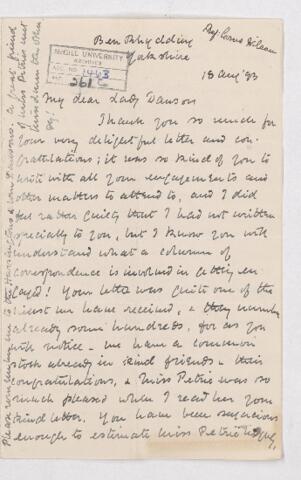 Ben Rhydding
Yorkshire
McGILL UNIVERSITY
ARCHIVES
ACC. NO. 1463
REF. 361
18 Aug '93
My dear Lady Dawson
Thank you so much for
your very delightful letter and con-
gratulations; it was so kind of you to
write with all your engagements and
other matters to attend to, and I did
feel rather guilty that I had not written
specially to you, but I know you will
understand what a column of
correspondence is involved in getting en-
gaged! Your letter was quite one of the
nicest we have received, & they number
already some hundreds, for as you
will notice - we have a common
stock already in kind friends & their
congratulations, & Miss Petrie was so
much pleased when I read her your
kind letter. You have been
enough to estimate Miss Petrie
Please remember me to the Harringtons & Dawsons. A great friend
of Miss Petrie's met
Miss Dawson the other
day!